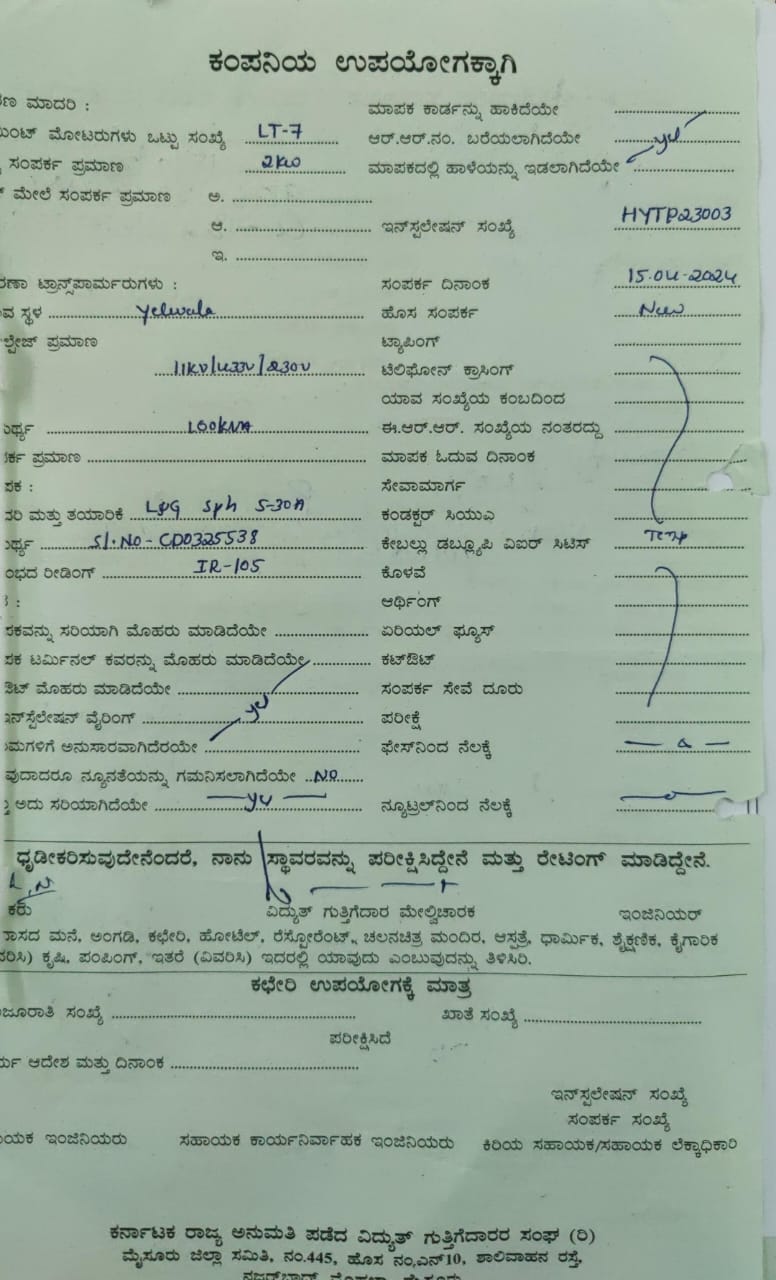 ಕಂಪನಿಯ ಉಪಯೋಗಕ್ಕಾಗಿ
ರಣ ಮಾದರಿ : ಮಾಪಕ ಕಾರ್ಡನ್ನು ಹಾಕಿದೆಯೇ
ಮೋಟರುಗಳು ಒಟ್ಟು ಸಂಖ್ಯೆ LT-7 ಆರ್.ಆರ್.ನಂ. ಬರೆಯಲಾಗಿದೆಯೇ yes
ಸಂಪರ್ಕ ಪ್ರಮಾಣ 2KW ಮಾಪಕದಲ್ಲಿ ಹಾಳೆಯನ್ನು ಇಡಲಾಗಿದೆಯೇ
ಮೇಲೆ ಸಂಪರ್ಕ ಪ್ರಮಾಣ ಅ.
ಆ. ಇನ್‌ಸ್ಪಲೇಷನ್ ಸಂಖ್ಯೆ HYTP23003
ಇ.
ರಣಾ ಟ್ರಾನ್ಸ್‌ಪಾರ್ಮರುಗಳು : ಸಂಪರ್ಕ ದಿನಾಂಕ 15.04-2024
ವ ಸ್ಥಳ Yelwala ಹೊಸ ಸಂಪರ್ಕ New
ಲ್ಟೇಜ್ ಪ್ರಮಾಣ ಟ್ಯಾಪಿಂಗ್
11KV/433V/230V ಟೆಲಿಫೋನ್ ಕ್ರಾಸಿಂಗ್
ಯಾವ ಸಂಖ್ಯೆಯ ಕಂಬದಿಂದ
ರ್ಥ್ಯ 100KVA ಈ.ಆರ್.ಆರ್. ಸಂಖ್ಯೆಯ ನಂತರದ್ದು
ರ್ಕ ಪ್ರಮಾಣ ಮಾಪಕ ಓದುವ ದಿನಾಂಕ
ಪಕ : ಸೇವಾಮಾರ್ಗ
ದರಿ ಮತ್ತು ತಯಾರಿಕೆ L&G Sph 5-30A ಕಂಡಕ್ಟರ್ ಸಿಯುಎ
ರ್ಥ್ಯ Sl.NO-CD0325538 ಕೇಬಲ್ಲು ಡಬ್ಲ್ಯೂಪಿ ವಿಐರ್ ಸಿಟಿಸ್ Temp
ಂಭದ ರೀಡಿಂಗ್ IR-105 ಕೊಳವೆ
ಆರ್ಥಿಂಗ್
ಪಕವನ್ನು ಸರಿಯಾಗಿ ಮೊಹರು ಮಾಡಿದೆಯೇ ಏರಿಯಲ್ ಫ್ಯೂಸ್
ಪಕ ಟರ್ಮಿನಲ್ ಕವರನ್ನು ಮೊಹರು ಮಾಡಿದೆಯೇ ಕಟ್‌ಔಟ್
ಔಟ್ ಮೊಹರು ಮಾಡಿದೆಯೇ ಸಂಪರ್ಕ ಸೇವೆ ದೂರು
ಇನ್‌ಸ್ಟೆಲೇಷನ್ ವೈರಿಂಗ್ yes ಪರೀಕ್ಷೆ
ಯಮಗಳಿಗೆ ಅನುಸಾರವಾಗಿದೆರಯೇ ಫೇಸ್‌ನಿಂದ ನೆಲಕ್ಕೆ
ವುದಾದರೂ ನ್ಯೂನತೆಯನ್ನು ಗಮನಿಸಲಾಗಿದೆಯೇ NO
ಅದು ಸರಿಯಾಗಿದೆಯೇ yes ನ್ಯೂಟ್ರಲ್‌ನಿಂದ ನೆಲಕ್ಕೆ
ಧೃಡೀಕರಿಸುವುದೇನೆಂದರೆ, ನಾನು ಸ್ಥಾವರವನ್ನು ಪರೀಕ್ಷಿಸಿದ್ದೇನೆ ಮತ್ತು ರೇಟಿಂಗ್ ಮಾಡಿದ್ದೇನೆ.
ಕರು ವಿದ್ಯುತ್ ಗುತ್ತಿಗೆದಾರ ಮೇಲ್ವಿಚಾರಕ ಇಂಜಿನಿಯರ್
ರಾಸದ ಮನೆ, ಅಂಗಡಿ, ಕಛೇರಿ, ಹೋಟೆಲ್, ರೆಸ್ಟೋರೆಂಟ್, ಚಲನಚಿತ್ರ ಮಂದಿರ, ಆಸ್ಪತ್ರೆ, ಧಾರ್ಮಿಕ, ಶೈಕ್ಷಣಿಕ, ಕೈಗಾರಿಕ
ವರಿಸಿ) ಕೃಷಿ, ಪಂಪಿಂಗ್, ಇತರೆ (ವಿವರಿಸಿ) ಇದರಲ್ಲಿ ಯಾವುದು ಎಂಬುವುದನ್ನು ತಿಳಿಸಿರಿ.
ಕಛೇರಿ ಉಪಯೋಗಕ್ಕೆ ಮಾತ್ರ
ಜೂರಾತಿ ಸಂಖ್ಯೆ ಖಾತೆ ಸಂಖ್ಯೆ
ಪರೀಕ್ಷಿಸಿದೆ
ರ್ಯ ಆದೇಶ ಮತ್ತು ದಿನಾಂಕ
ಇನ್‌ಸ್ಪಲೇಷನ್ ಸಂಖ್ಯೆ
ಸಂಪರ್ಕ ಸಂಖ್ಯೆ
ಯಕ ಇಂಜಿನಿಯರು ಸಹಾಯಕ ಕಾರ್ಯನಿರ್ವಾಹಕ ಇಂಜಿನಿಯರು ಕಿರಿಯ ಸಹಾಯಕ/ಸಹಾಯಕ ಲೆಕ್ಕಾಧಿಕಾರಿ
ಕರ್ನಾಟಕ ರಾಜ್ಯ ಅನುಮತಿ ಪಡೆದ ವಿದ್ಯುತ್ ಗುತ್ತಿಗೆದಾರರ ಸಂಘ (ರಿ)
ಮೈಸೂರು ಜಿಲ್ಲಾ ಸಮಿತಿ, ನಂ.445, ಹೊಸ ನಂ.ಎನ್10, ಶಾಲಿವಾಹನ ರಸ್ತೆ,